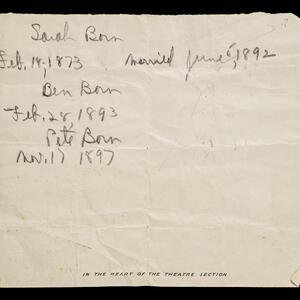 Sarah Born
Feb. 18, 1873 married June 5, 1892
Ben Born
Feb. 28, 1893
Pete Born
Nov. 17 1897
IN THE HEART OF THE THEATRE SECTION